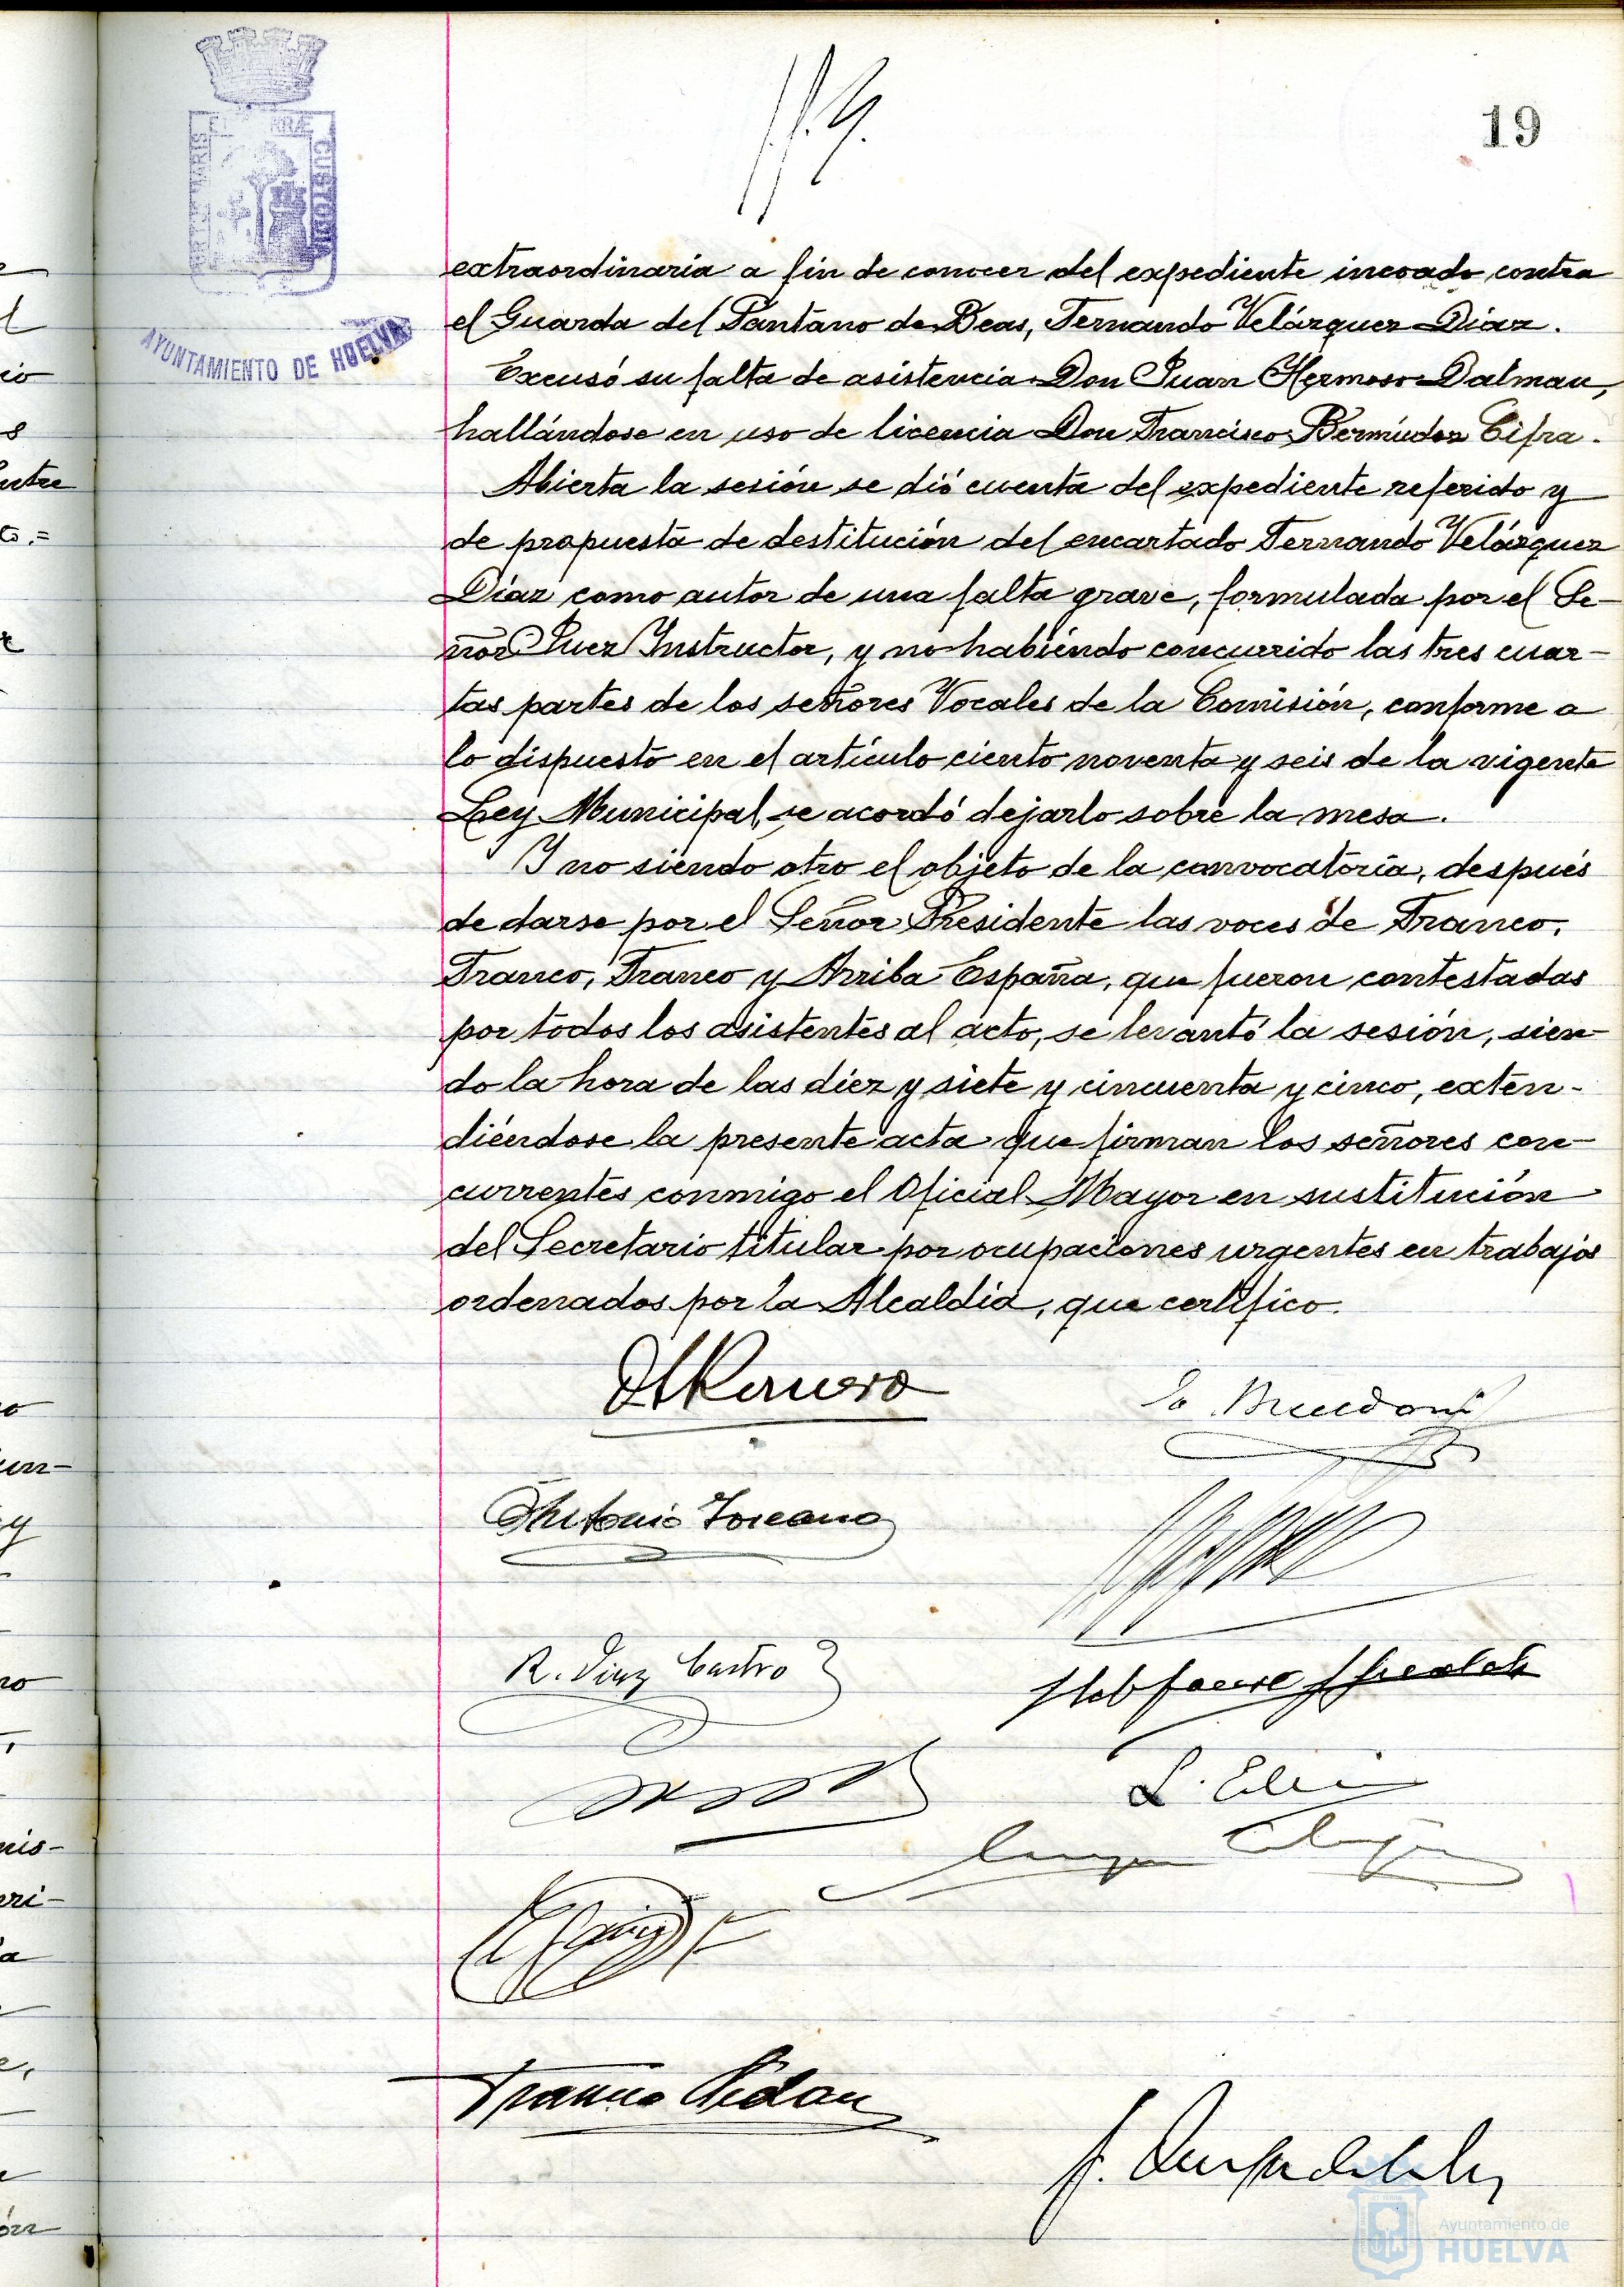 19
AYUNTAMIENTO DE HUELVA
extraordinaria a fin de conocer del expediente incoado contra
el Guarda del Pantano de Beas, Fernando Velázquez Díaz.
Excusó su falta de asistencia Don Juan Hermoso Dalmau,
hallándose en uso de licencia Don Francisco Bermúdez Cifra.
Abierta la sesión se dió cuenta del expediente referido y
de propuesta de destitución del encartado Fernando Velázquez
Díaz como autor de una falta grave, formulada por el Se-
ñor Juez Instructor, y no habiendo concurrido las tres cuar-
tas partes de los señores Vocales de la Comisión, conforme a
lo dispuesto en el artículo ciento noventa y seis de la vigente
Ley Municipal, se acordó dejarlo sobre la mesa.
Y no siendo otro el objeto de la convocatoria, después
de darse por el Señor Presidente las voces de Franco,
Franco, Franco y Arriba España, que fueron contestadas
por todos los asistentes al acto, se levantó la sesión, sien-
do la hora de las diez y siete y cincuenta y cinco, exten-
diéndose la presente acta que firman los señores con-
currentes conmigo el Oficial Mayor en sustitución
del Secretario titular por ocupaciones urgentes en trabajos
ordenados por la Alcaldía, que certifico.
Antonio Toscano
R. Diaz Castro
Ayuntamiento de
HUELVA